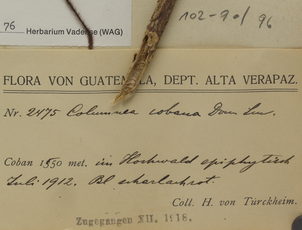 76
Herbarium Vadense (WAG)
102-90/96
FLORA VON GUATEMALA, DEPT. ALTA VERAPAZ.
Nr. 2475 Columnea cobana Donn. Sm.
Coban 1350 met. im Hochwald epiphytisch
Juli 1912. Bl scharlachrot.
Coll. H. von Türckheim.
Zugegangen XII. 1918.